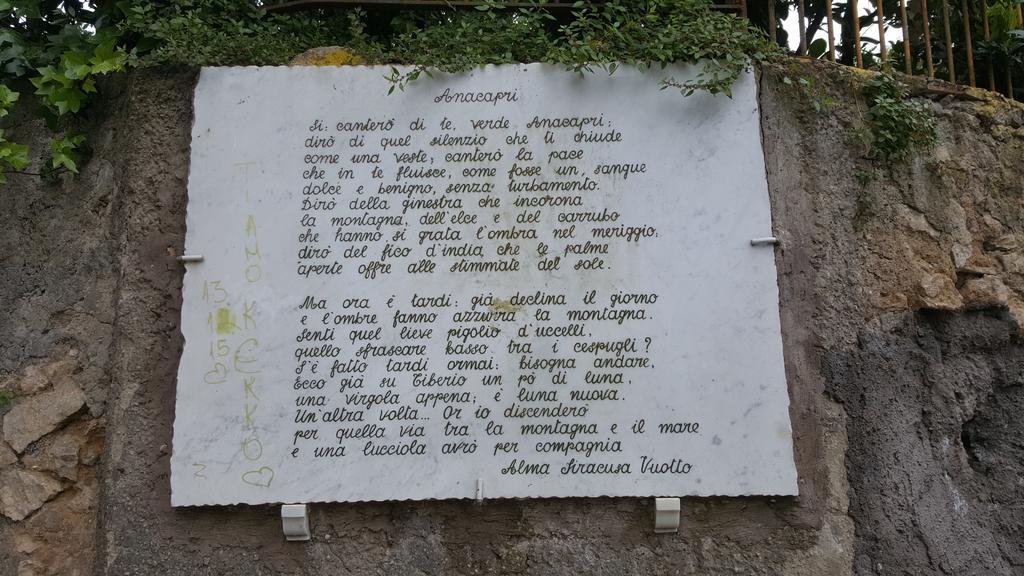 Anacapri
Si: canterò di te, verde Anacapri;
dirò di quel silenzio che ti chiude
come una veste; canterò la pace
che in te fluisce, come fosse un sangue
dolce e benigno, senza turbamento.
Dirò della ginestra che incorona
la montagna, dell'elce e del carrubo
che hanno sì grata l'ombra nel meriggio;
dirò del fico d'india che le palme
aperte offre alle stimmate del sole.
Ma ora è tardi: già declina il giorno
e l'ombre fanno azzurra la montagna.
Senti quel lieve pigolio d'uccelli,
quello sfrascare basso tra i cespugli?
S'è fatto tardi ormai: bisogna andare.
Ecco già su Tiberio un pò di luna,
una virgola appena; è luna nuova.
Un'altra volta... Or io discenderò
per quella via tra la montagna e il mare
e una lucciola avrò per compagnia
Alma Siracusa Vuotto
13
15